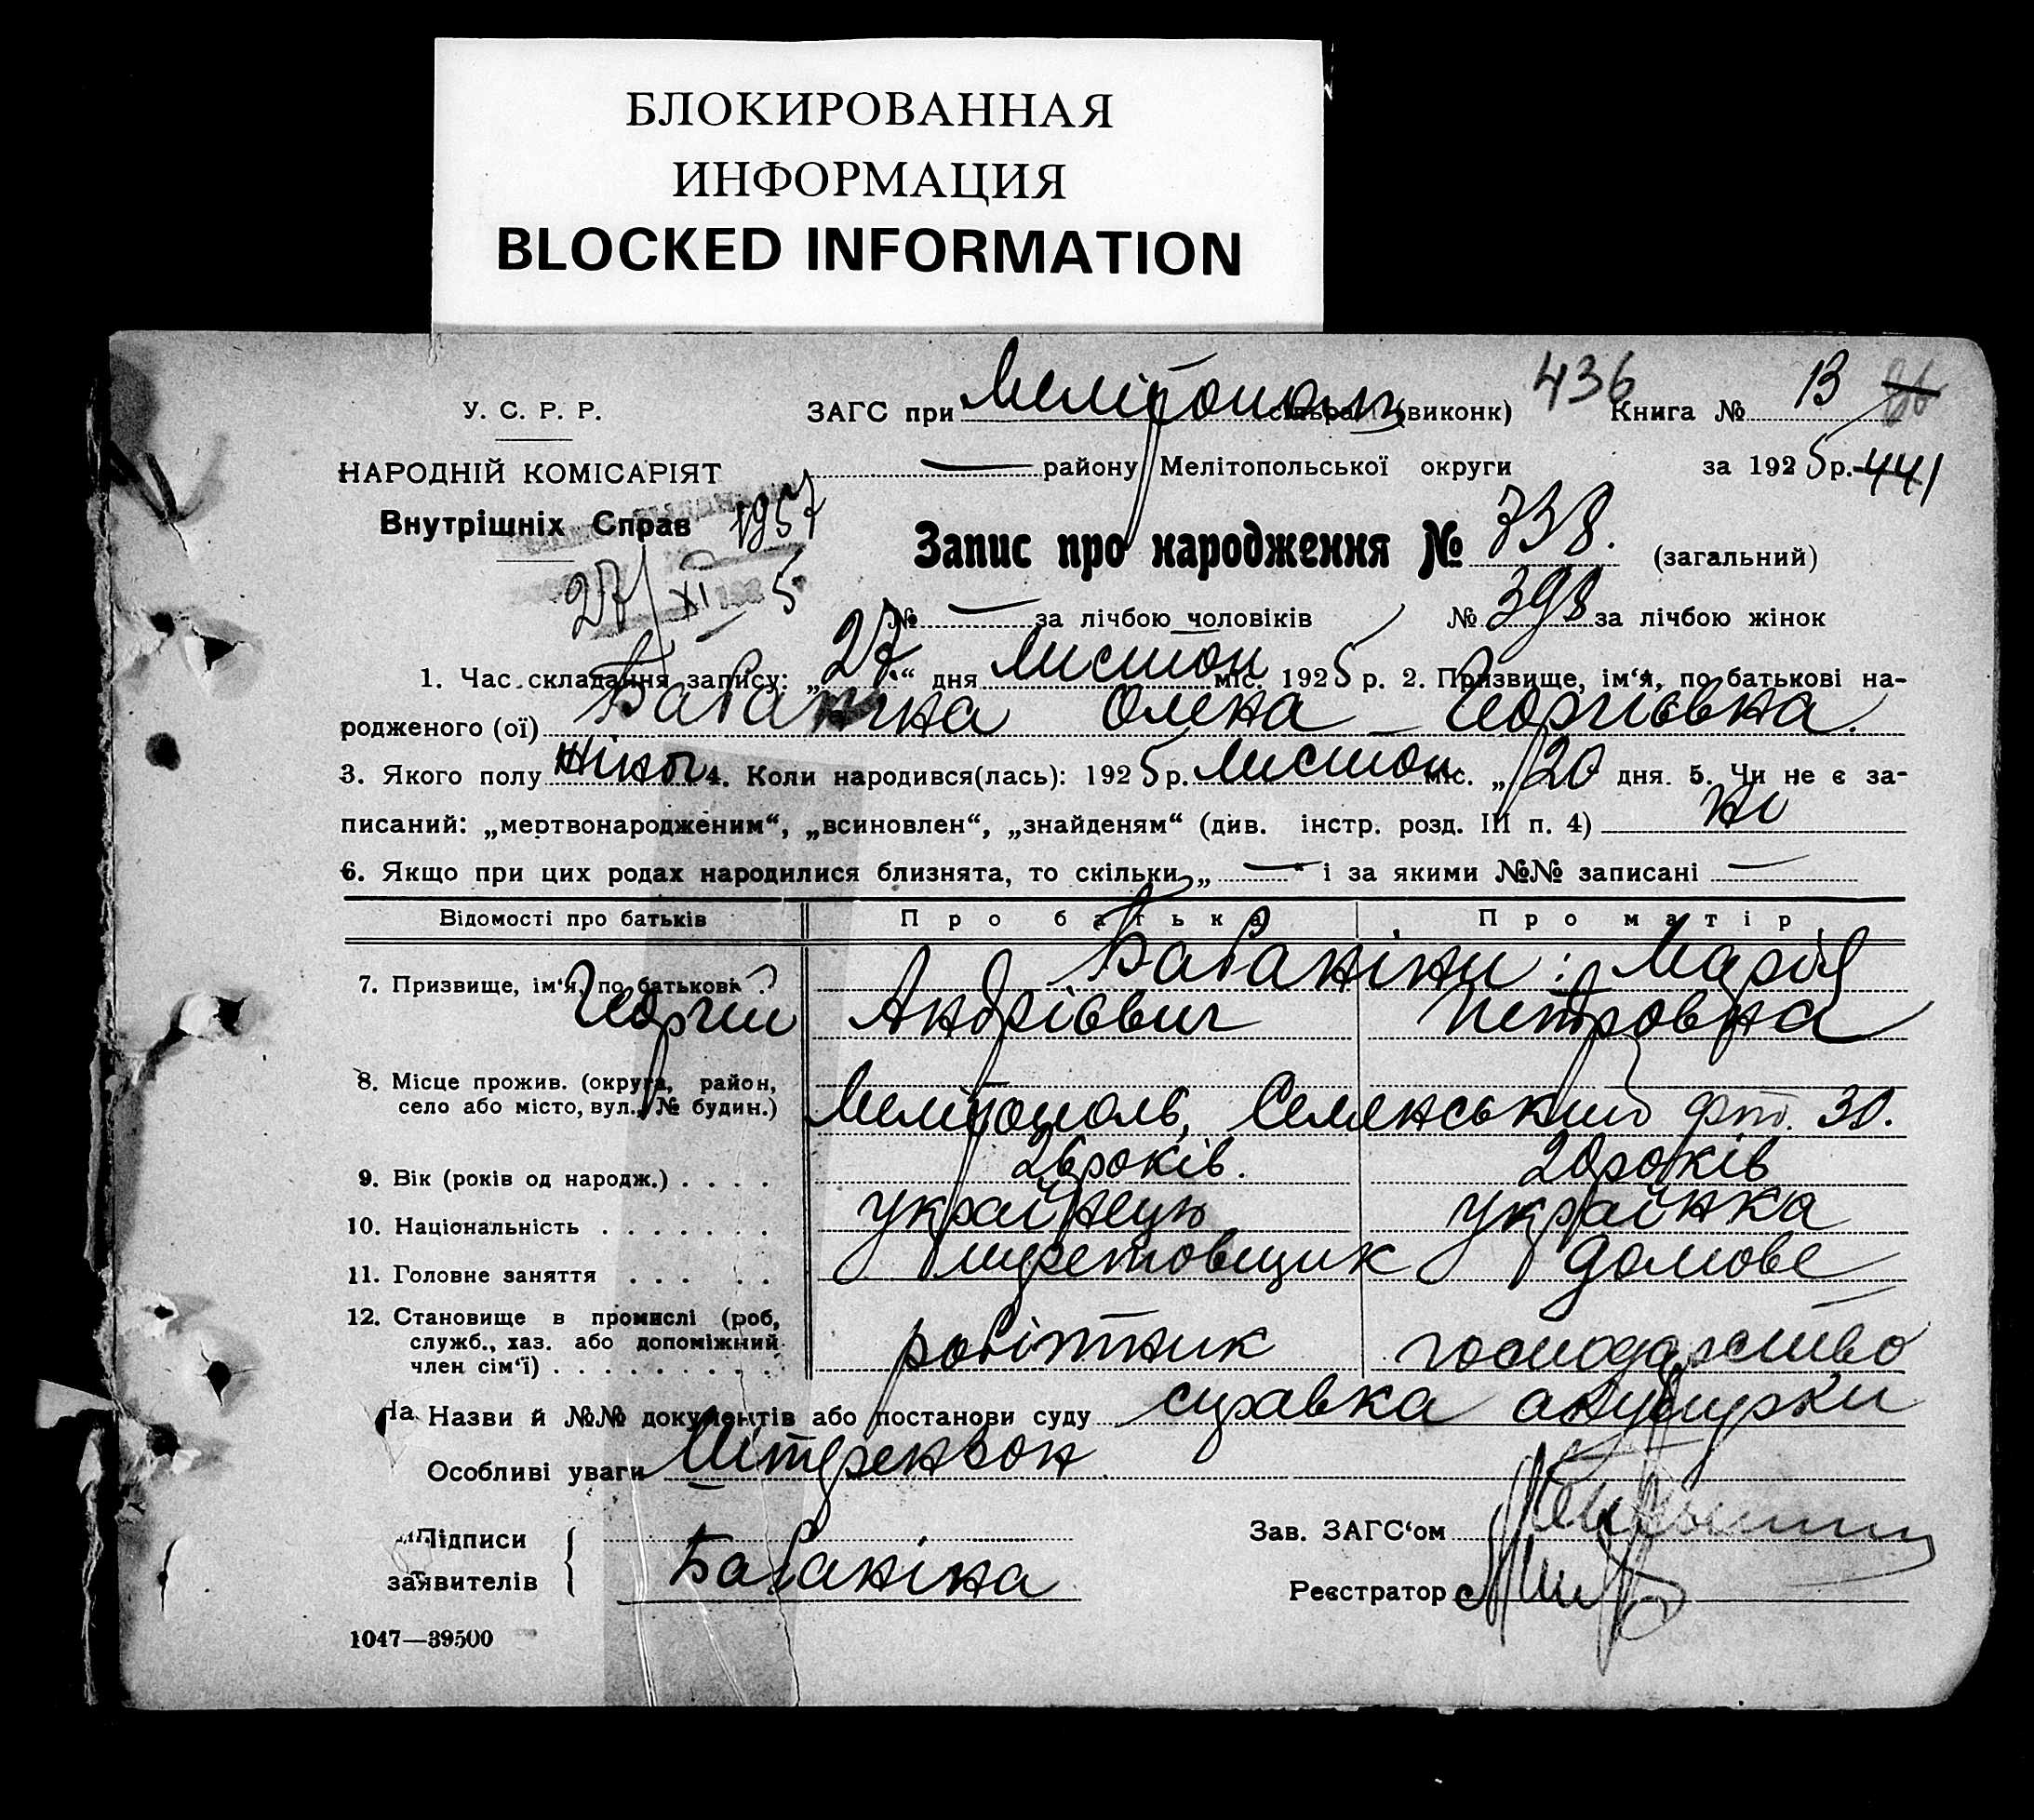 БЛОКИРОВАННАЯ
ИНФОРМАЦИЯ
BLOCKED INFORMATION
У. С. Р. Р.
ЗАГС при Мелітопол (виконк) 436 Книга № 13
НАРОДНІЙ КОМІСАРІЯТ
— району Мелітопольської округи за 1925 р. 441
Внутрішніх Справ 1957
Запис про народження № 738. (загальний)
27/XI 5
№ — за лічбою чоловіків № 398 за лічбою жінок
1. Час складання запису: „27“ дня листоп міс. 1925 р. 2. Призвище, ім‘я, по батькові на-
родженого (ої) Бабаніна Олена Георгієвна.
3. Якого полу жіноч 4. Коли народився(лась): 1925 р. листоп міс. „20 дня. 5. Чи не є за-
писаний: „мертвонародженим“, „всиновлен“, „знайденям“ (див. інстр. розд. III п. 4) ні
6. Якщо при цих родах народилися близнята, то скільки „ — “ і за якими №№ записані —
Відомості про батьків Про батька Про матір
Бабаніни: Марія
7. Призвище, ім‘я, по батькові
Георгий Андрієвич Петровна
8. Місце прожив. (округа, район,
село або місто, вул., № будин.) Мелітополь, 30.
9. Вік (років од народж.) . . . . 26 років. 20 років
10. Національність . . . . . . . українець українка
11. Головне заняття . . . . . домове
12. Становище в промислі (роб,
служб., хаз. або допоміжний
член сім‘ї) . . . . . . . . . . робітник господарство
На Назви й №№ документів або постанови суду справка акушерки
Особливі уваги
Підписи
заявителів Бабаніна
Зав. ЗАГС‘ом
Реєстратор
1047—39500